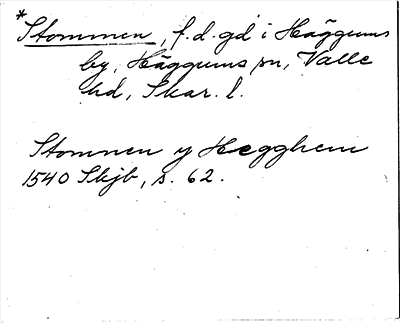 *Stommen, f.d. gd i Häggums
by, Häggums sn, Valle
hd, Skar. l.
Stomnen y Hegghem
1540 Skjb, s. 62.